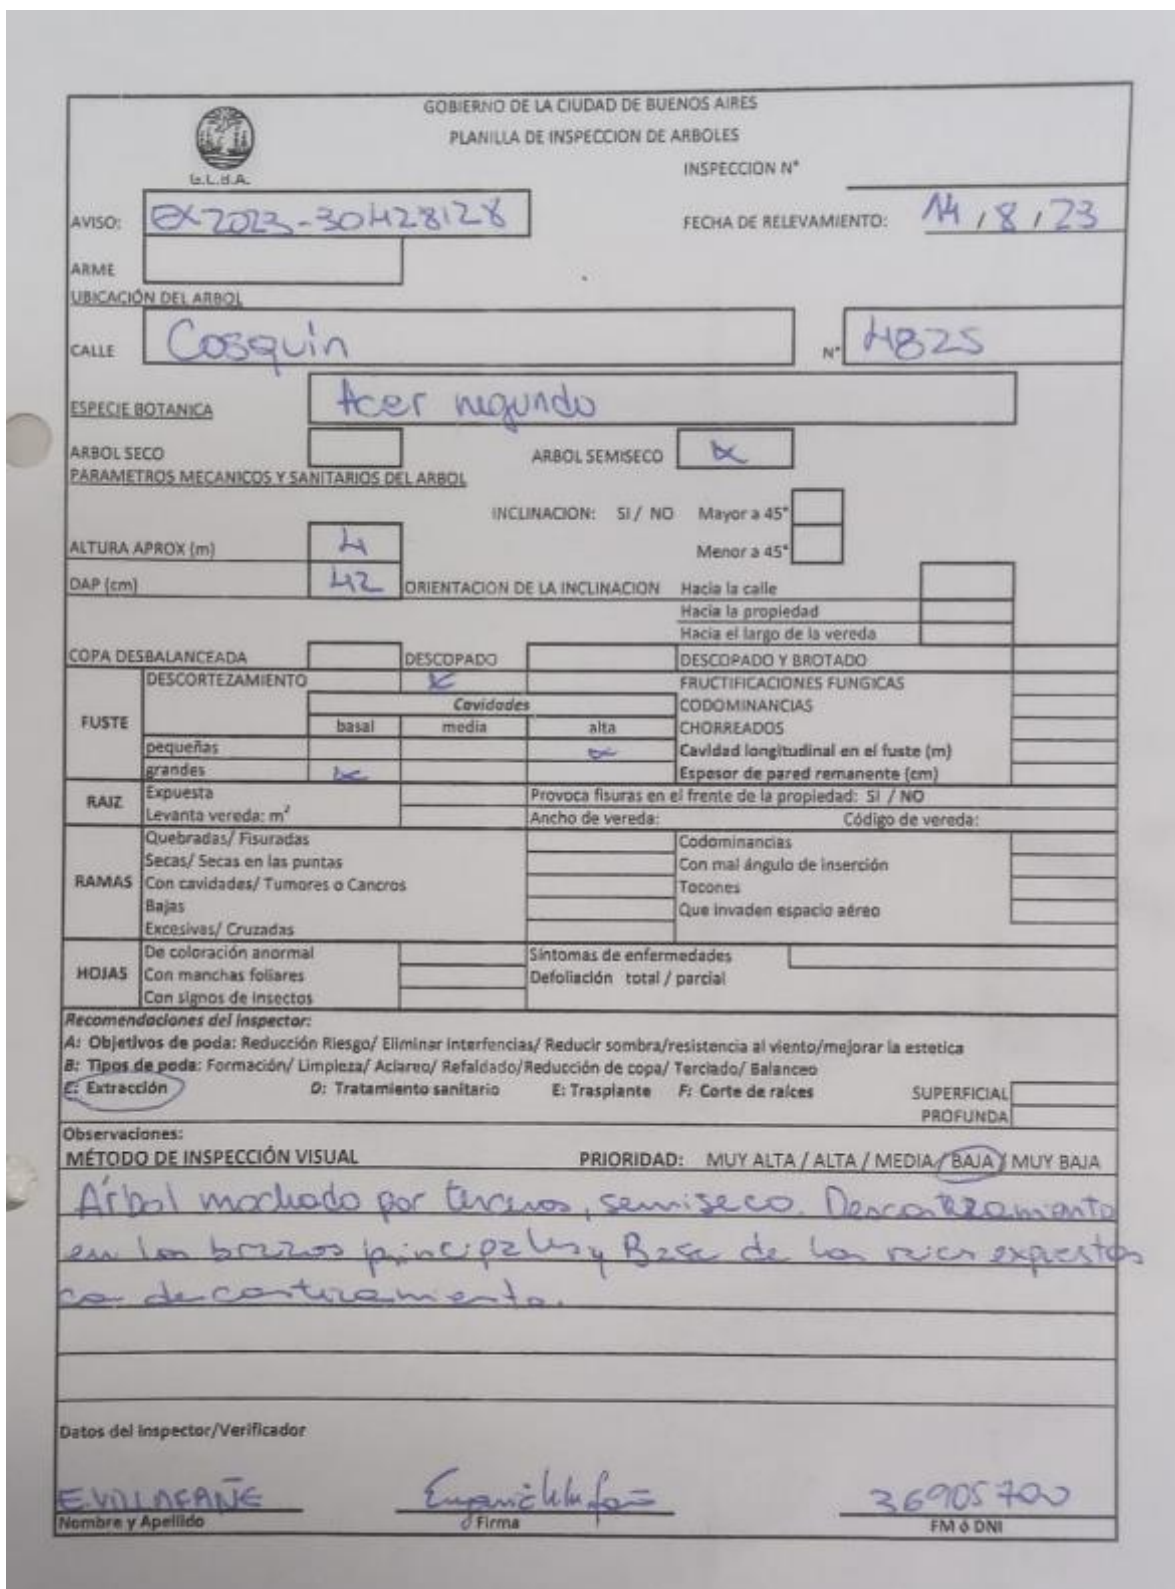 GOBIERNO DE LA CIUDAD DE BUENOS AIRES
PLANILLA DE INSPECCION DE ARBOLES
G.C.B.A.
INSPECCION N°
AVISO: EX2023-30428128 FECHA DE RELEVAMIENTO: 14/8/23
ARME
UBICACIÓN DEL ARBOL
CALLE Cosquin N° 4825
ESPECIE BOTANICA Acer negundo
ARBOL SECO ARBOL SEMISECO x
PARAMETROS MECANICOS Y SANITARIOS DEL ARBOL
INCLINACION: SI / NO Mayor a 45°
ALTURA APROX (m) 4 Menor a 45°
DAP (cm) 42 ORIENTACION DE LA INCLINACION Hacia la calle
Hacia la propiedad
Hacia el largo de la vereda
COPA DESBALANCEADA DESCOPADO DESCOPADO Y BROTADO
DESCORTEZAMIENTO x FRUCTIFICACIONES FUNGICAS
Cavidades CODOMINANCIAS
FUSTE basal media alta CHORREADOS
pequeñas x Cavidad longitudinal en el fuste (m)
grandes x Espesor de pared remanente (cm)
RAIZ Expuesta Provoca fisuras en el frente de la propiedad: SI / NO
Levanta vereda: m² Ancho de vereda: Código de vereda:
Quebradas/ Fisuradas Codominancias
Secas/ Secas en las puntas Con mal ángulo de inserción
RAMAS Con cavidades/ Tumores o Cancros Tocones
Bajas Que invaden espacio aéreo
Excesivas/ Cruzadas
De coloración anormal Síntomas de enfermedades
HOJAS Con manchas foliares Defoliación total / parcial
Con signos de insectos
Recomendaciones del inspector:
A: Objetivos de poda: Reducción Riesgo/ Eliminar Interfencias/ Reducir sombra/resistencia al viento/mejorar la estetica
B: Tipos de poda: Formación/ Limpieza/ Aclareo/ Refaldado/Reducción de copa/ Terciado/ Balanceo
C: Extracción D: Tratamiento sanitario E: Trasplante F: Corte de raíces SUPERFICIAL
PROFUNDA
Observaciones:
MÉTODO DE INSPECCIÓN VISUAL PRIORIDAD: MUY ALTA / ALTA / MEDIA / BAJA / MUY BAJA
Árbol mochado por terceros, semiseco. Descortezamiento
en los brazos principales y Base de las raices expuestas
con descortezamiento.
Datos del Inspector/Verificador
E.VILLAFAÑE 36905700
Nombre y Apellido Firma FM ó DNI